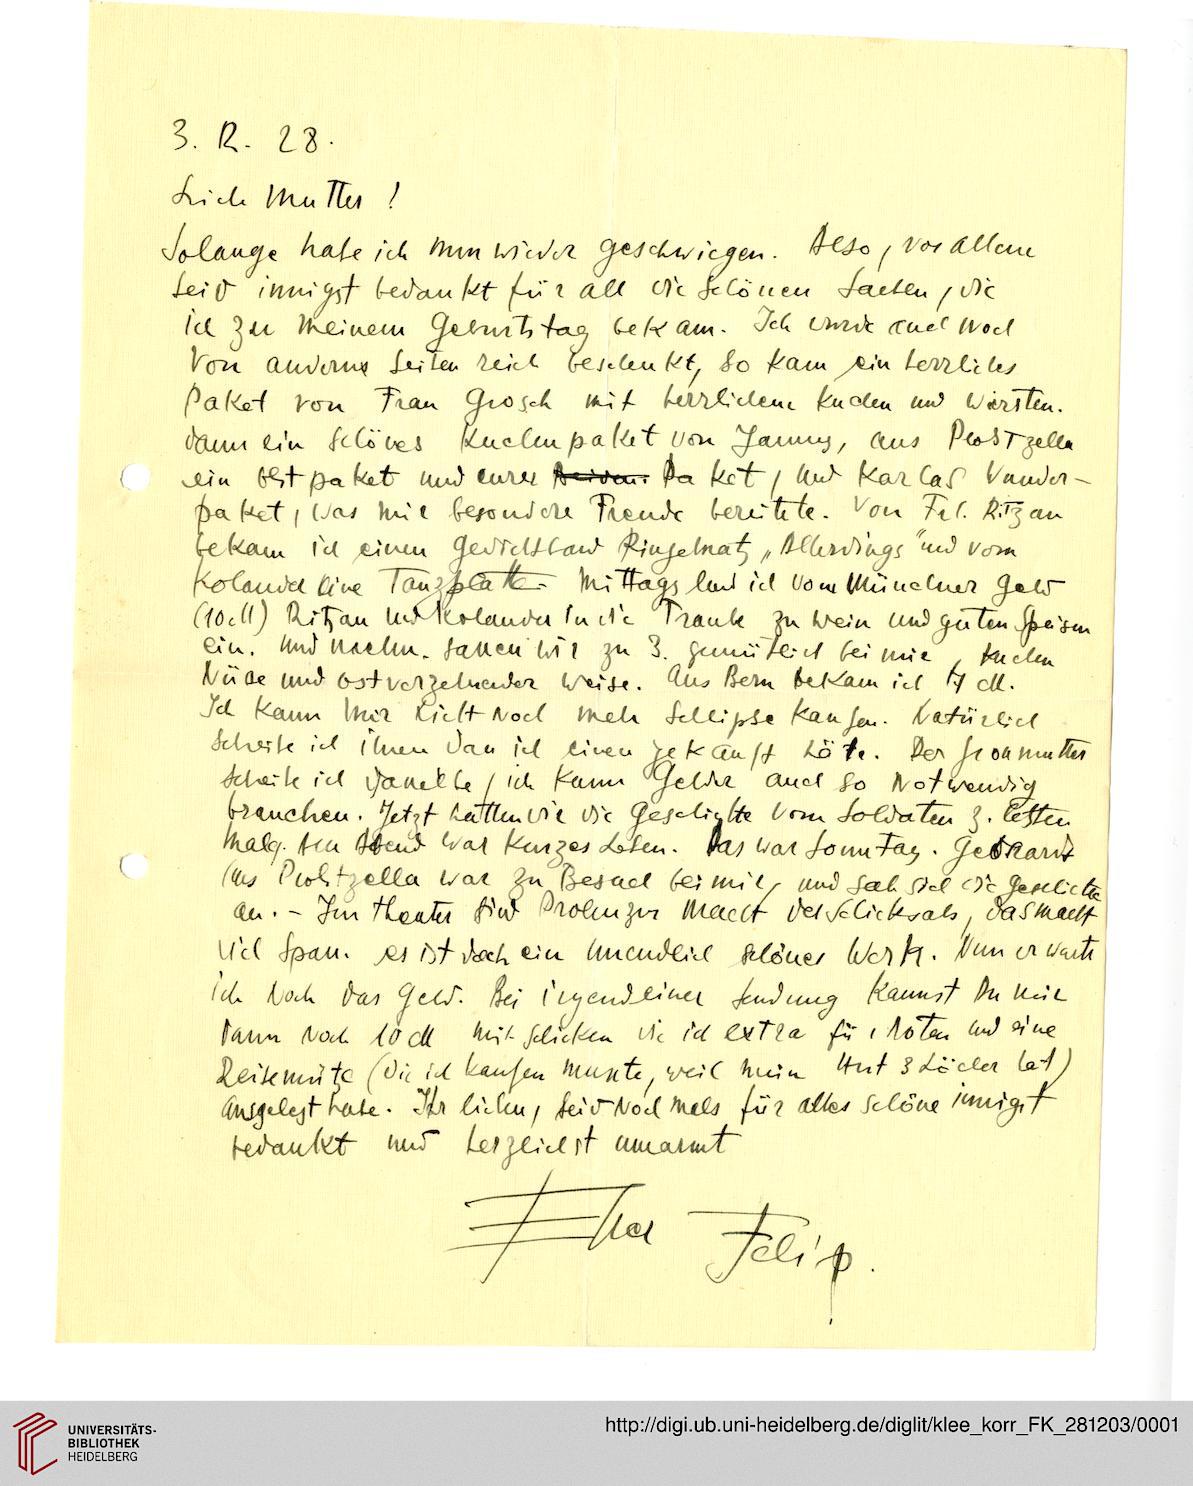 3. 12. 28.
Liebe Mutter!
Solange habe ich nun wieder geschwiegen. Also, vor allem
seid innigst bedankt für all die schönen Sachen, die
ich zu meinem Geburtstag bekam. Ich wurde auch noch
von anderen Seiten reich beschenkt, so kam ein herrliches
Paket von Frau Grosch mit herrlichem Kuchen und Würsten.
dann ein schönes Kuchenpaket von Jannys, aus Probstzella
ein Obstpaket und eurer Paket, und Karlas Wunder-
paket, was mir besondere Freude bereitete. Von Frl. Ritzau
bekam ich einen Gedichtband Ringelnatz „Allerdings" und vom
Kolander eine Tanzplatte. Mittags lud ich vom Münchner Geld
(10 M) Ritzau und Kolander in die Traube zu Wein und guten Speisen
ein. Und nachm. sassen wir zu 3. gemütlich bei mir, Kuchen
Nüsse und obstverzehrender Weise. Aus Bern bekam ich M.
Ich kann mir nicht noch mehr Schlipse kaufen. Natürlich
schreibe ich ihnen dass ich einen gekauft hätte. Der Grossmutter
schreibe ich dasselbe, ich kann Gelder auch so notwendig
brauchen. Jetzt hatten wir die Geschichte vom Soldaten z. letzten
Abend war kurzes Leben. Das war Sonntag. Gebhardt
aus Probstzella war zu Besuch bei mir, und sah sich die Geschichte
an. – Im Theater sind Proben zur Macht des Schicksals, das macht
viel Spass. es ist doch ein unendlich schönes Werk. Nun erwarte
ich noch das Geld. Bei irgendeiner Sendung kannst Du mir
dann noch 10 M mitschicken die ich extra für Noten und eine
Reisemütze (die ich kaufen musste, weil mein Hut 3 Löcher hat)
ausgelegt habe. Ihr lieben, seid nochmals für alles schöne innigst
bedankt und herzlichst umarmt
Euer Felix.
UNIVERSITÄTS-
BIBLIOTHEK
HEIDELBERG
http://digi.ub.uni-heidelberg.de/diglit/klee_korr_FK_281203/0001